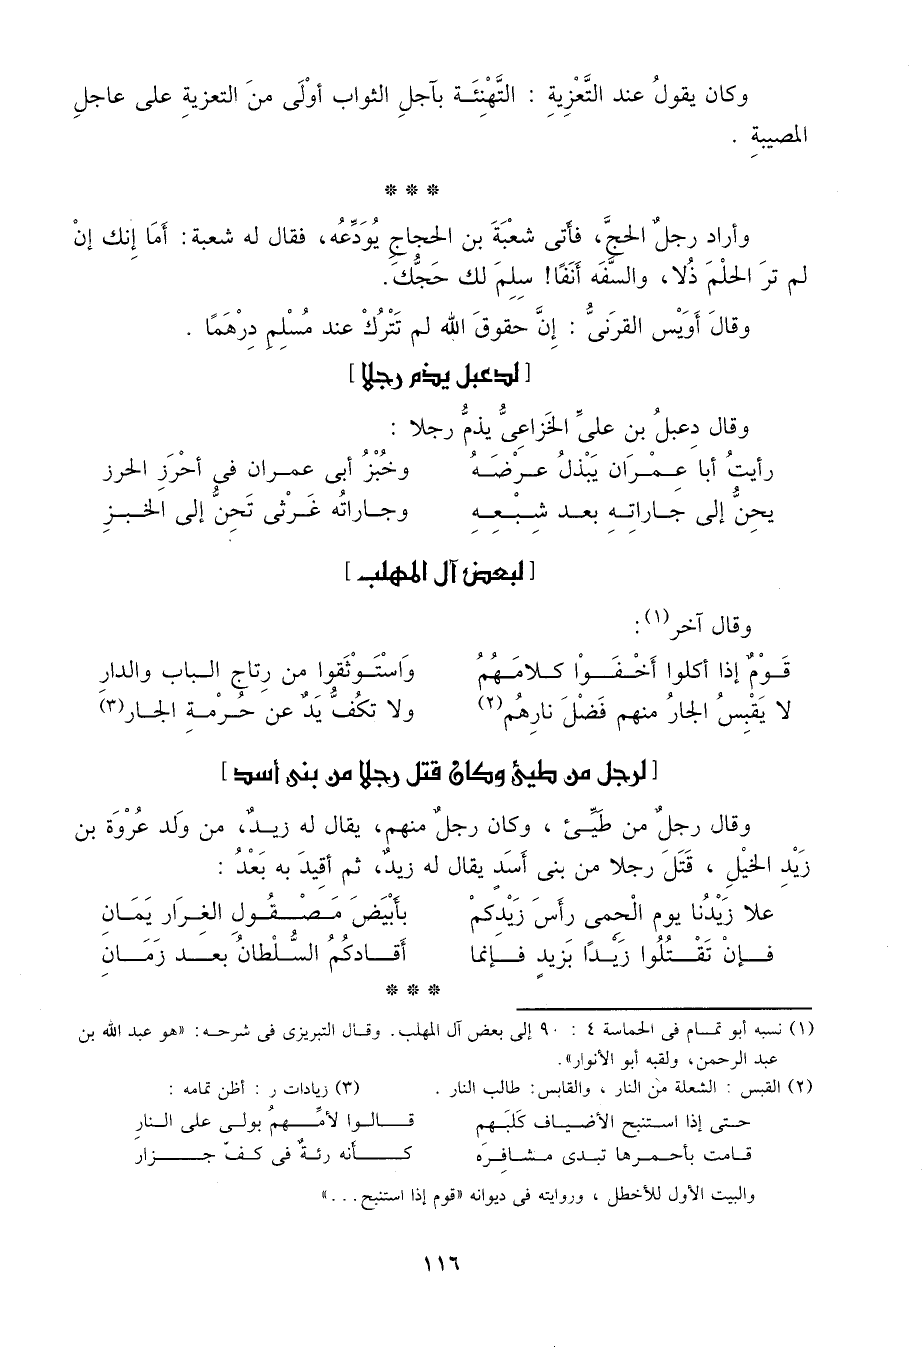 وكان يقولُ عند التَّعْزِيةِ : التَّهْنِئَـة بآجلِ الثواب أوْلَى منَ التعزيةِ على عاجلِ
المصيبةِ .
* * *
وأراد رجلٌ الحجَّ، فأتى شعْبَةَ بن الحجاجِ يُوَدِّعُه، فقال له شعبة: أمَا إنك إنْ
لم ترَ الحلْمَ ذُلا، والسَّفَه أنَفًا! سلِمَ لك حَجُّكَ.
وقالَ أُوَيْس القرَنىُّ : إنَّ حقوقَ الله لم تَتْرُكْ عند مُسْلِمٍ دِرْهَمًا .
[ لدعبل يذم رجلا ]
وقال دِعبلُ بن علىٍّ الخُزاعِىُّ يذمُّ رجلا :
رأيتُ أبا عـمْـرَان يَبْذلُ عـرْضَـهُ وخُبْزُ أبى عمـران فى أحْرَزِ الحرز
يحنُّ إلى جـاراتـهِ بعـد شـبْـعـه وجـاراتُه غَـرْثى تَحنُّ إلى الخـبـز
[ لبعض آل المهلب ]
وقال آخر(١):
قَـوْمٌ إذا أكلوا أخْـفَـوْا كـلامَـهُم وَاسْتَـوْثَقُوا من رِتاجِ الـباب والدارِ
لا يَقْبسُ الجارُ منهم فَضْلَ نارهُم(٢) ولا تكفُّ يدٌ عن حُـرْمـة الجـار(٣)
[ لرجل من طيئ وكان قتل رجلا من بنى أسد ]
وقال رجلٌ من طَيِّـئ ، وكان رجلٌ منهم، يقال له زيـدٌ، من ولد عُرْوَة بن
زَيْد الخيْلِ ، قَتَلَ رجلا من بنى أسَد يقال له زيدٌ، ثم أقيدَ به بَعْدُ :
علا زَيْدُنا يوم الْحِمى رأسَ زَيْدِكم بأبْيَضَ مَـصْـقُـول الغـرَارِ يَمَـانِ
فـإنْ تَقْـتُلوا زَيْـدًا بزَيد فـإنما أقـادكُمُ السُّـلطانُ بعـد زمَـانِ
* * *
(١) نسبه أبو تمـام فى الحماسة ٤ : ٩٠ إلى بعض آل المهلب. وقـال التبريزى فى شرحـه: «هو عبد الله بن
عبد الرحمن، ولقبه أبو الأنوار».
(٢) القبس : الشعلة من النار ، والقابس: طالب النار . (٣) زيادات ر : أظن تمامه :
حـتى إذا اسـتنبح الأضـيـاف كَلْبَـهم قـالـوا لأمِّـهمُ بولـى على النـارِ
قـامت بأحـمـرها تبدى مـشـافـره كـأنـه رئـةٌ فى كـفِّ جـزار
والبيت الأول للأخطل ، وروايته فى ديوانه «قوم إذا استنبح...»
١١٦